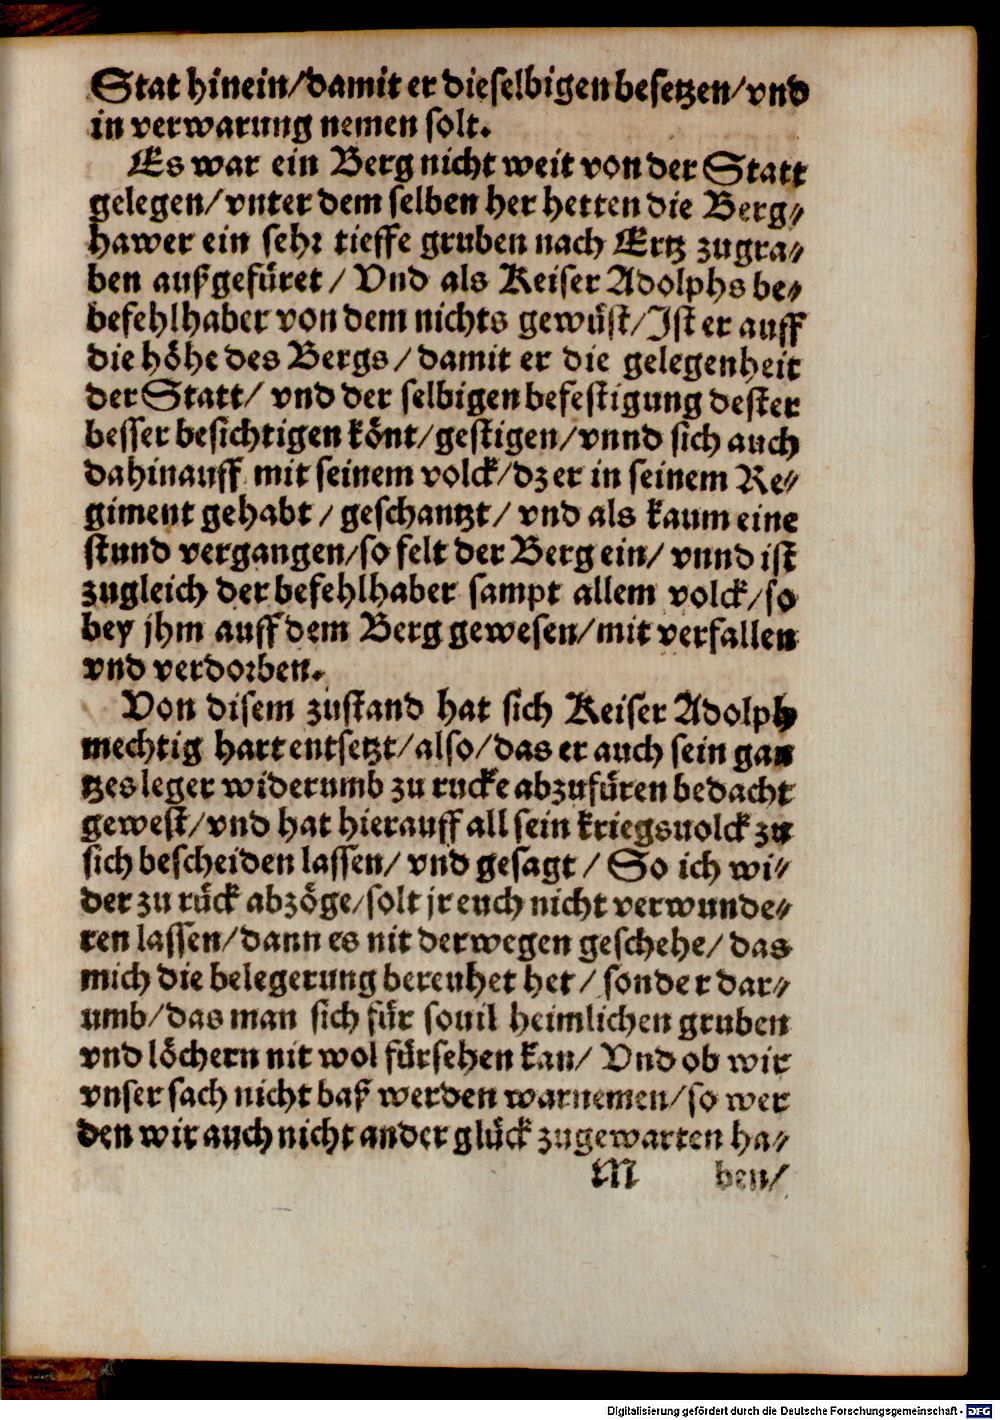 Stat hinein/damit er dieselbigen besetzen/vnd
in verwarung nemen solt.
Es war ein Berg nicht weit von der Statt
gelegen/vnter dem selben her hetten die Berg⸗
hawer ein sehr tieffe gruben nach Ertz zugra⸗
ben außgefüret/ Vnd als Keiser Adolphs be⸗
befehlhaber von dem nichts gewüst/Ist er auff
die höhe des Bergs/damit er die gelegenheit
der Statt/ vnd der selbigen befestigung dester
besser besichtigen könt/gestigen/vnnd sich auch
dahinauff mit seinem volck/dz er in seinem Re⸗
giment gehabt/geschantzt/ vnd als kaum eine
stund vergangen/so felt der Berg ein/ vnnd ist
zugleich der befehlhaber sampt allem volck/so
bey jhm auff dem Berg gewesen/mit verfallen
vnd verdorben.
Von disem zustand hat sich Keiser Adolph
mechtig hart entsetzt/also/das er auch sein gan
tzes leger widerumb zu rucke abzufüren bedacht
gewest/vnd hat hierauff all sein kriegsuolck zu
sich bescheiden lassen/ vnd gesagt/ So ich wi⸗
der zu rück abzöge/solt jr euch nicht verwunde⸗
ren lassen/dann es nit derwegen geschehe/ das
mich die belegerung bereuhet het/ sonder dar⸗
umb/das man sich für souil heimlichen gruben
vnd löchern nit wol fürsehen kan/ Vnd ob wir
vnser sach nicht baß werden warnemen/so wer
den wir auch nicht ander glück zugewarten ha⸗
M ben/
Digitalisierung gefördert durch die Deutsche Forschungsgemeinschaft - DFG